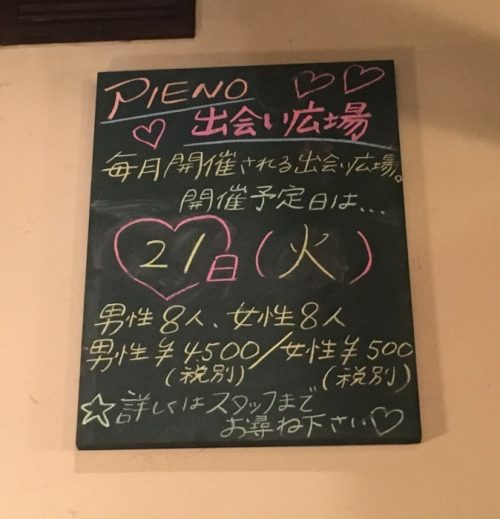 PIENO
出会い広場
毎月開催される出会い広場。
開催予定日は...
21日(火)
男性8人、女性8人
男性¥4500/女性¥500
(税別) (税別)
☆詳しくはスタッフまで
お尋ね下さい♡